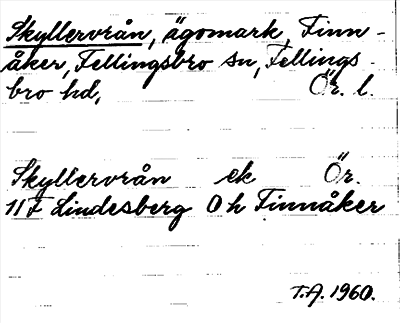 Skyllervrån, ägomark, Finn-
åker, Fellingsbro sn, Fellings-
bro hd, Ör. l.
Skyllervrån ek Ör.
11F Lindesberg 0h Finnåker
T.A. 1960.